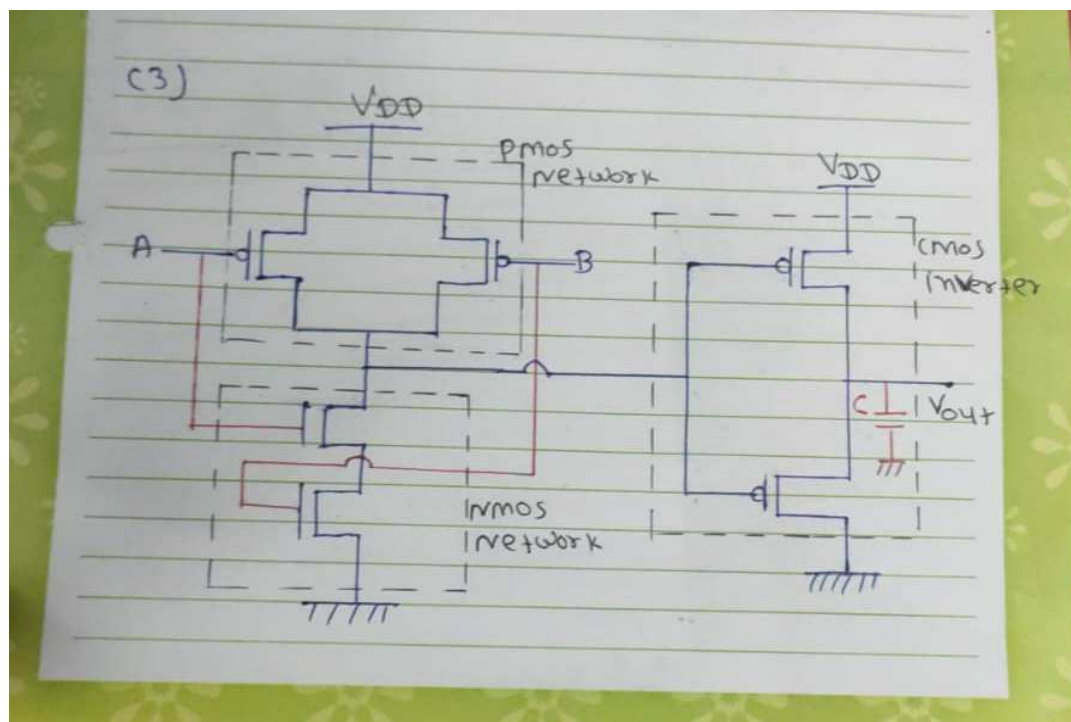 (3)
VDD
PMOS
Network
VDD
A
B
CMOS
Inverter
C
Vout
NMOS
Network